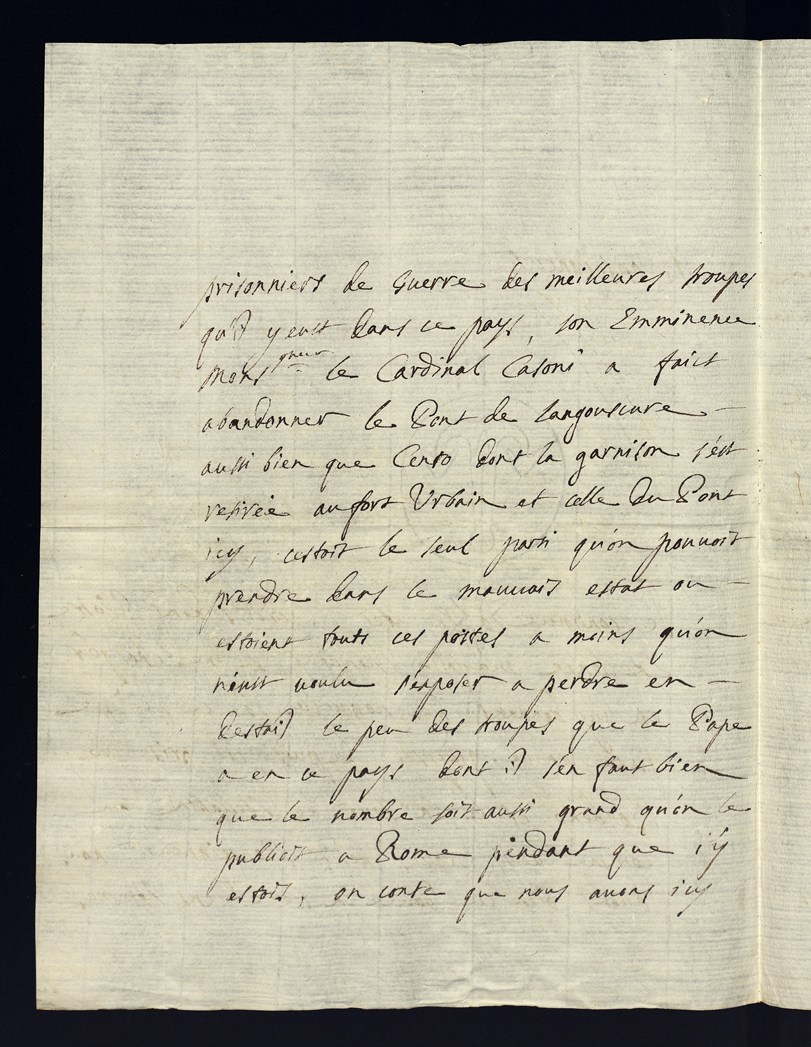 prisonniers de Guerre des meilleures troupes
qu'il y eust dans ce pays, son Emminence
Mons^gneur le Cardinal Casoni a faict
abandonner le Pont de langouscure —
aussi bien que Cento dont la garnison s'est
retirée au fort Urbain et celle du Pont
icy, cestoit le seul parti qu'on pouuoit
prendre dans le mauuais estat ou —
estoient touts ces postes a moins qu'on
n'eust voulu s'exposer a perdre en —
destail le peu des troupes que le Pape
a en ce pays dont il s'en faut bien
que le nombre soit aussi grand qu'on le
publioit a Rome pendant que i'y
estois, on conte que nous auons icy